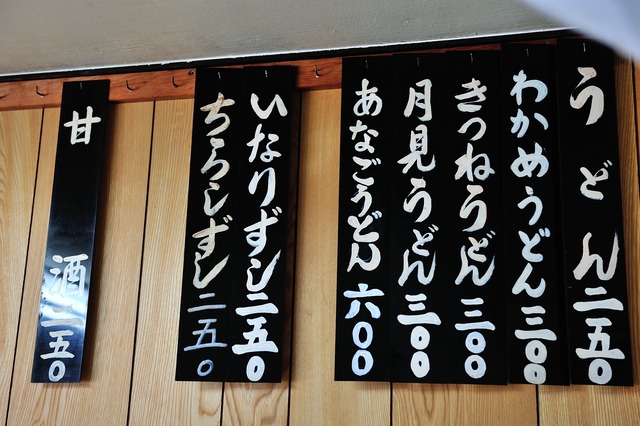 うどん二五0
わかめうどん三00
きつねうどん三00
月見うどん三00
あなごうどん六00
いなりずし二五0
ちらしずし二五0
甘酒二五0